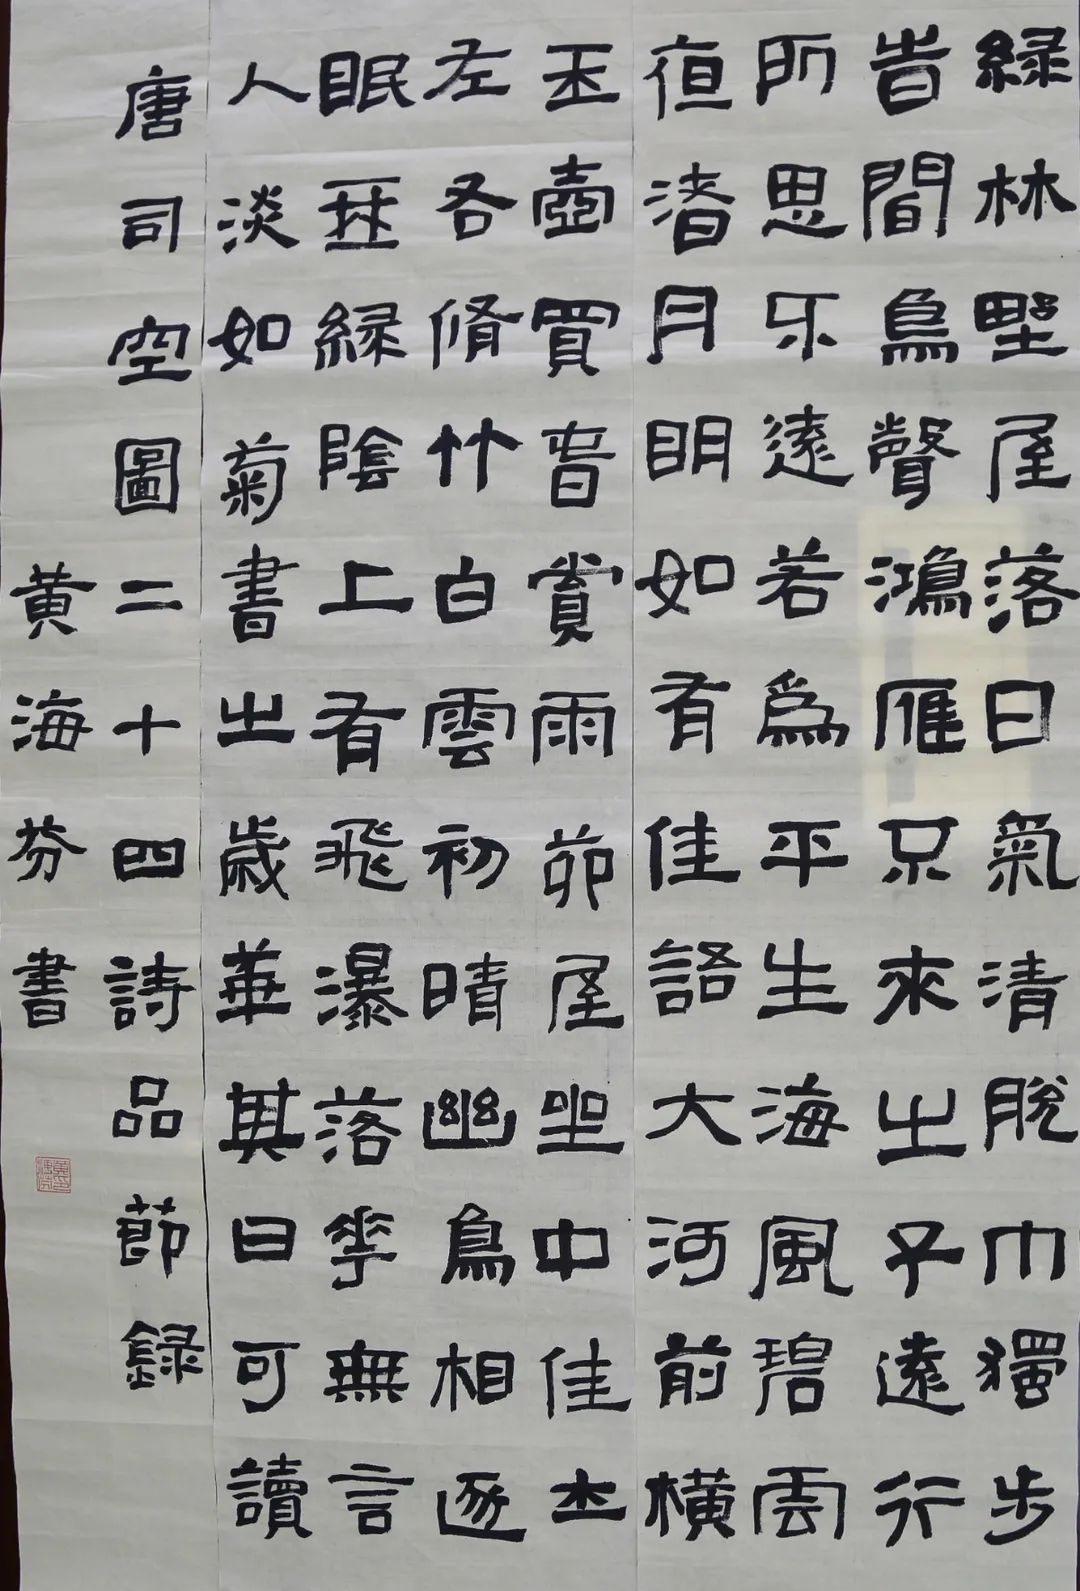 緑林野屋落日氣清脫巾獨步
旹間鳥聲鴻雁不來之子遠行
所思不遠若爲平生海風碧雲
夜渚月明如有佳語大河前橫
玉壺買春賞雨茆屋坐中佳士
左右脩竹白雲初晴幽鳥相逐
眠琴緑陰上有飛瀑落花無言
人淡如菊書之歲華其曰可讀
唐司空圖二十四詩品節録
黃海芬書